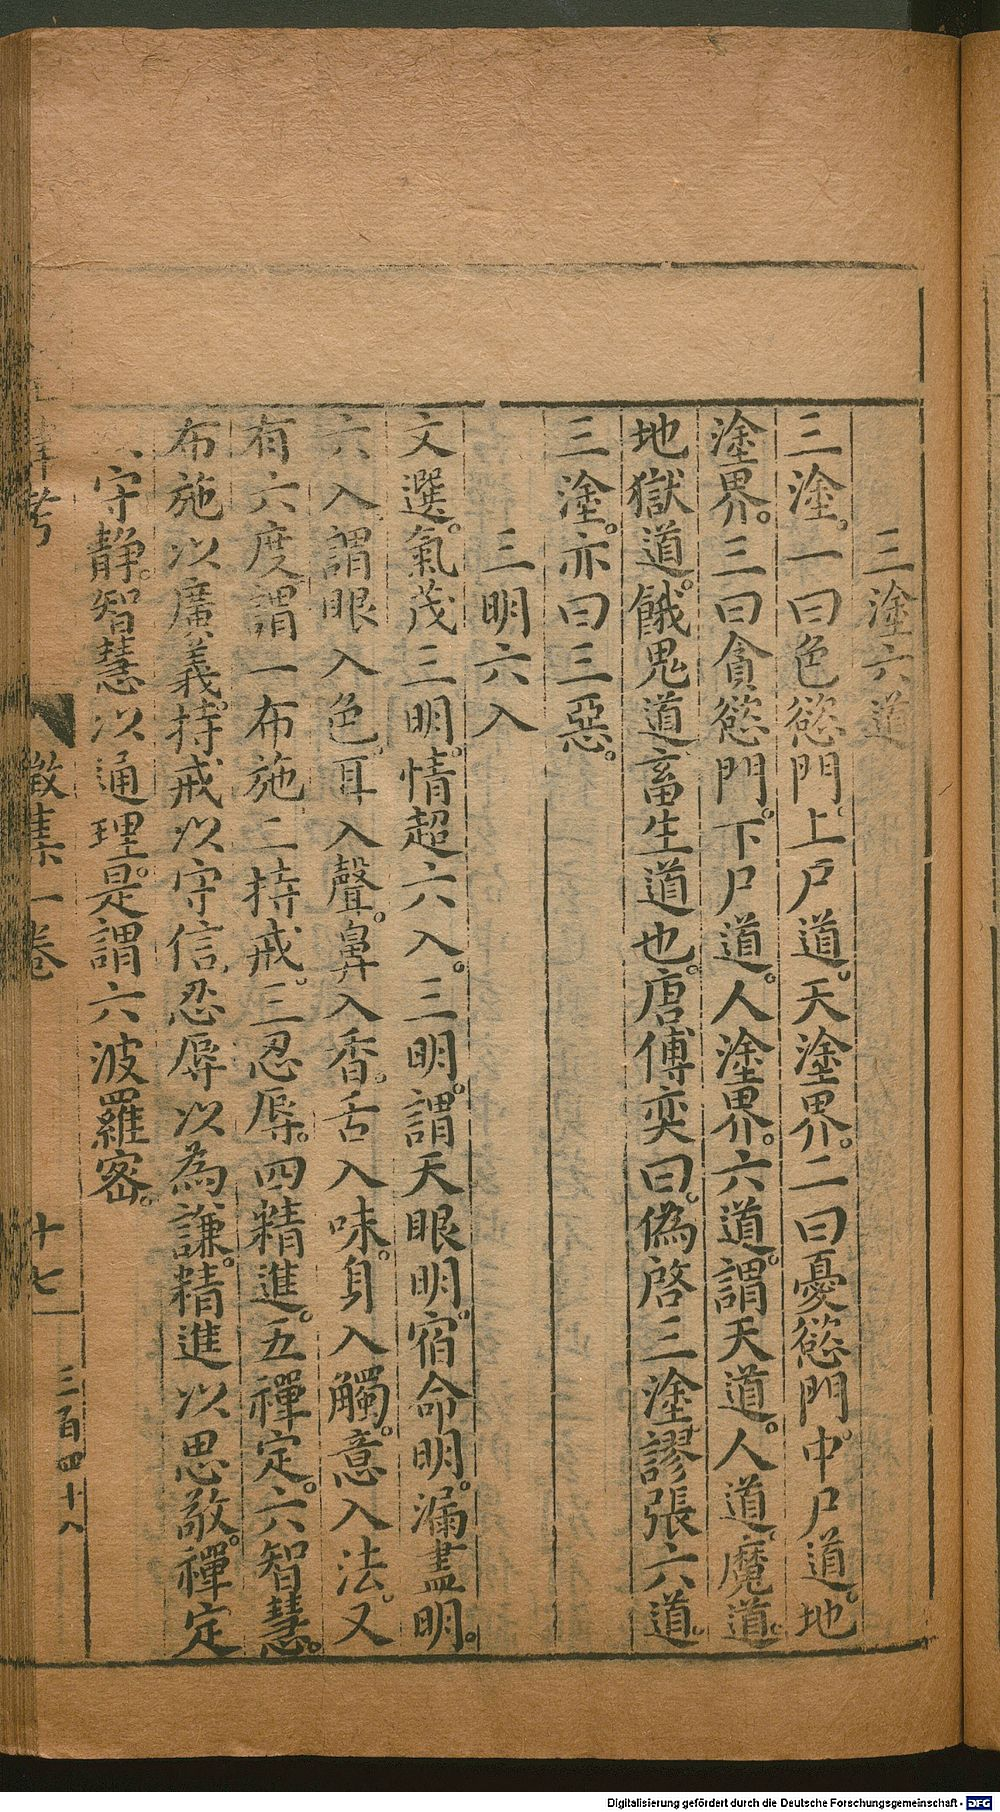 三塗六道
三塗。一曰色慾門。上尸道。天塗界。二曰憂慾門。中尸道。地
塗界。三曰貪慾門。下尸道。人塗界。六道。謂天道。人道。魔道。
地獄道。餓鬼道。畜生道也。唐傅奕曰。偽啓三塗。謬張六道。
三塗。亦曰三惡。
三明六入
文選。氣茂三明。情超六入。三明。謂天眼明。宿命明。漏盡明。
六入謂眼入色。耳入聲。鼻入香。舌入味。身入觸。意入法。又
有六度。謂一布施。二持戒。三忍辱。四精進。五禪定。六智慧。
布施以廣義。持戒以守信。忍辱以為謙。精進以思敬。禪定
以守靜。智慧以通理。是謂六波羅密。
考
徵集一卷
十七
三百四十八
Digitalisierung gefördert durch die Deutsche Forschungsgemeinschaft - DFG